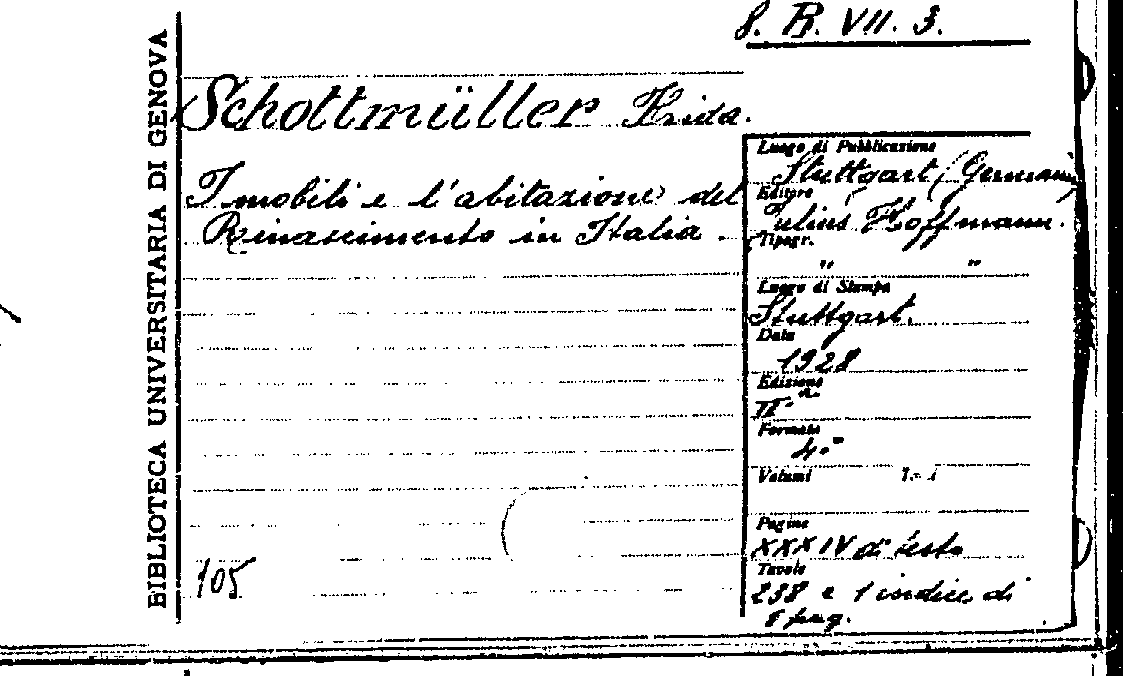 8. R. VII. 3.
BIBLIOTECA UNIVERSITARIA DI GENOVA
Schottmüller Frida.
I mobili e l'abitazione del
Rinascimento in Italia.
105
Luogo di Pubblicazione
Stuttgart (Germania
Editore
Julius Hoffmann.
Tipogr.
" "
Luogo di Stampa
Stuttgart.
Data
1928
Edizione
IIa
Formato
4.°
Volumi
Pagine
XXXIV di testo
Tavole
238 e 1 indice di
pag.